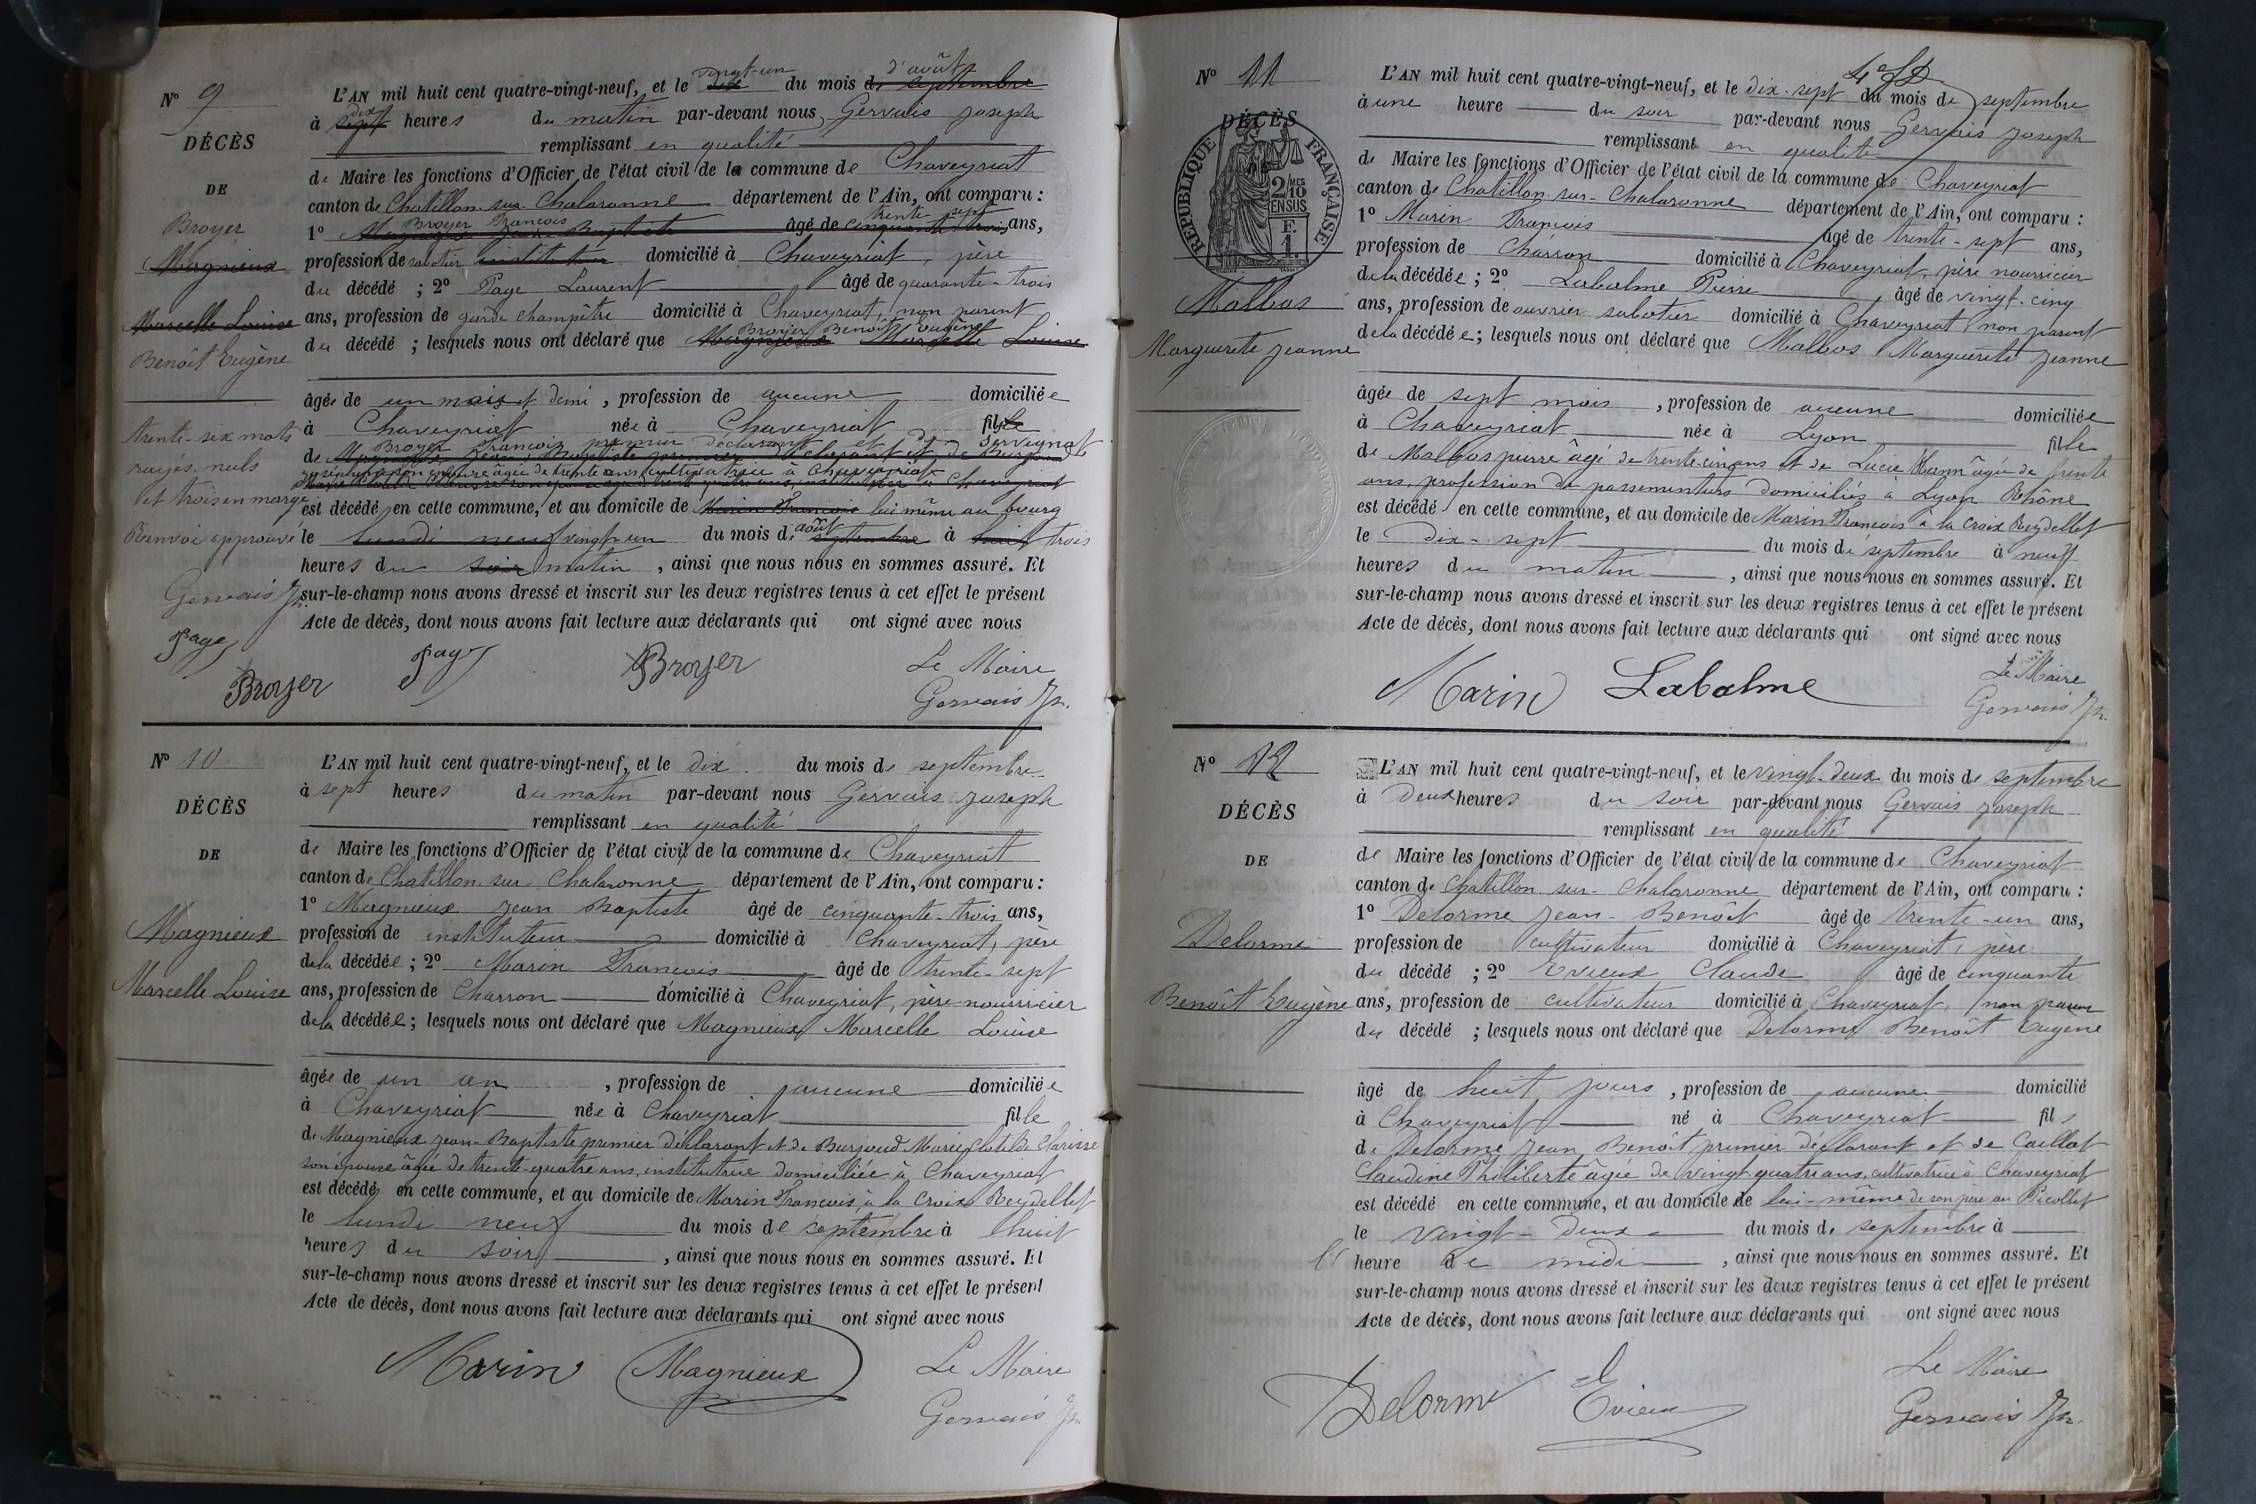 N° 9
DÉCÈS
DE
Broyer
Magnieux
Marcelle Louise
Benoît Eugène
trente-six mots
rayés nuls
et trois en marge
Renvoi approuvé
Gervais Jh.
Page
Broyer
L'AN mil huit cent quatre-vingt-neuf, et le dix vingt-un du mois de septembre d'août
à sept dix heures du matin par-devant nous Gervais Joseph
remplissant en qualité
de Maire les fonctions d'Officier de l'état civil de la commune de Chaveyriat
canton de Chatillon-sur-Chalaronne département de l'Ain, ont comparu :
1° Magnieux Jean Baptiste Broyer François âgé de cinquante-trois trente-sept ans,
profession de sabotier instituteur domicilié à Chaveyriat, père
du décédé ; 2° Page Laurent âgé de quarante-trois
ans, profession de garde champêtre domicilié à Chaveyriat, non parent
du décédé ; lesquels nous ont déclaré que Magnieux Marcelle Louise Broyer Benoît Eugène
âgée de un mois et demi, profession de aucune domiciliée
à Chaveyriat née à Chaveyriat fille
de Broyer François premier déclarant et de Servignat
Magnieux Jean Baptiste premier déclarant et de Burjoud
son épouse âgée de trente ans cultivatrice à Chaveyriat
Marie Clotilde Clarisse son épouse âgée de trente-quatre ans, institutrice à Chaveyriat
est décédé en cette commune, et au domicile de Marin François lui même au bourg
le lundi neuf vingt-un du mois de septembre août à huit trois
heures du soir matin, ainsi que nous nous en sommes assuré. Et
sur-le-champ nous avons dressé et inscrit sur les deux registres tenus à cet effet le présent
Acte de décès, dont nous avons fait lecture aux déclarants qui ont signé avec nous
Page Broyer Le Maire
Gervais Jh.
N° 10
DÉCÈS
DE
Magnieux
Marcelle Louise
L'AN mil huit cent quatre-vingt-neuf, et le dix du mois de septembre
à sept heures du matin par-devant nous Gervais Joseph
remplissant en qualité
de Maire les fonctions d'Officier de l'état civil de la commune de Chaveyriat
canton de Chatillon-sur-Chalaronne département de l'Ain, ont comparu :
1° Magnieux Jean Baptiste âgé de cinquante-trois ans,
profession de instituteur domicilié à Chaveyriat, père
de la décédée ; 2° Marin François âgé de trente-sept
ans, profession de Charron domicilié à Chaveyriat, père nourricier
de la décédée ; lesquels nous ont déclaré que Magnieux Marcelle Louise
âgée de un an, profession de aucune domiciliée
à Chaveyriat née à Chaveyriat fille
de Magnieux Jean-Baptiste premier déclarant et de Burjoud Marie Clotilde Clarisse
son épouse âgée de trente-quatre ans, institutrice domiciliée à Chaveyriat
est décédé en cette commune, et au domicile de Marin François, à la Croix Reydellet
le lundi neuf du mois de septembre à huit
heures du soir, ainsi que nous nous en sommes assuré. Et
sur-le-champ nous avons dressé et inscrit sur les deux registres tenus à cet effet le présent
Acte de décès, dont nous avons fait lecture aux déclarants qui ont signé avec nous
Marin Magnieux Le Maire
Gervais Jh.
N° 11
DÉCÈS
RÉPUBLIQUE FRANÇAISE
2/10MES
EN SUS
F.
1.
Malbos
Marguerite Jeanne
L'AN mil huit cent quatre-vingt-neuf, et le dix-sept du mois de septembre
à une heure du soir par-devant nous Gervais Joseph
remplissant en qualité
de Maire les fonctions d'Officier de l'état civil de la commune de Chaveyriat
canton de Chatillon-sur-Chalaronne département de l'Ain, ont comparu :
1° Marin François âgé de trente-sept ans,
profession de Charron domicilié à Chaveyriat père nourricier
de la décédée ; 2° Labalme Pierre âgé de vingt-cinq
ans, profession de ouvrier sabotier domicilié à Chaveyriat non parent
de la décédée ; lesquels nous ont déclaré que Malbos Marguerite Jeanne
âgée de sept mois, profession de aucune domiciliée
à Chaveyriat née à Lyon fille
de Malbos pierre âgé de trente-cinq ans et de Lucie Hum âgée de trente
ans, profession de passementiers domiciliés à Lyon Rhône
est décédé en cette commune, et au domicile de Marin François à la Croix Reydellet
le dix-sept du mois de septembre à neuf
heures du matin, ainsi que nous nous en sommes assuré. Et
sur-le-champ nous avons dressé et inscrit sur les deux registres tenus à cet effet le présent
Acte de décès, dont nous avons fait lecture aux déclarants qui ont signé avec nous
Marin Labalme Le Maire
Gervais Jh.
N° 12
DÉCÈS
DE
Delorme
Benoît Eugène
L'AN mil huit cent quatre-vingt-neuf, et le vingt-deux du mois de septembre
à Deux heures du soir par-devant nous Gervais Joseph
remplissant en qualité
de Maire les fonctions d'Officier de l'état civil de la commune de Chaveyriat
canton de Chatillon-sur-Chalaronne département de l'Ain, ont comparu :
1° Delorme Jean-Benoît âgé de trente-un ans,
profession de cultivateur domicilié à Chaveyriat, père
du décédé ; 2° Evieux Claude âgé de cinquante
ans, profession de cultivateur domicilié à Chaveyriat, non parent
du décédé ; lesquels nous ont déclaré que Delorme Benoît Eugène
âgé de huit jours, profession de aucune domicilié
à Chaveyriat né à Chaveyriat fils
de Delorme Jean Benoît premier déclarant et de Caillat
Claudine Philiberte âgée de vingt-quatre ans, cultivatrice à Chaveyriat
est décédé en cette commune, et au domicile de lui-même de son père au Picollet
le vingt-deux du mois de septembre à
l' heure de midi, ainsi que nous nous en sommes assuré. Et
sur-le-champ nous avons dressé et inscrit sur les deux registres tenus à cet effet le présent
Acte de décès, dont nous avons fait lecture aux déclarants qui ont signé avec nous
Delorme Evieux Le Maire
Gervais Jh.